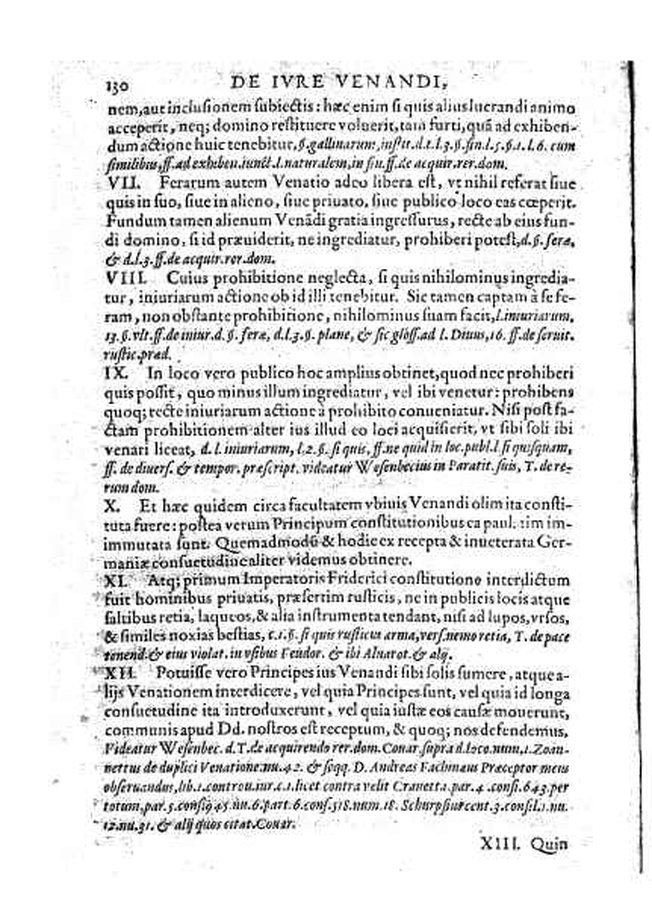 130 DE IVRE VENANDI,
nem, aut inclusionem subiectis: hæc enim si quis alius lucrandi animo
acceperit, neq; domino restituere voluerit, tam furti, quã ad exhiben-
dum actione huic tenebitur, §. gallinarum, instit. d.t. l.3. §. fin. l.5. §.1. l.6. cum
similibus, ff. ad exhiben. iunct. l. naturalem, in fin. ff. de acquir. rer. dom.
VII. Ferarum autem Venatio adeo libera est, vt nihil referat siue
quis in suo, siue in alieno, siue priuato, siue publico loco eas cœperit.
Fundum tamen alienum Venãdi gratia ingressurus, recte ab eius fun-
di domino, si id præuiderit, ne ingrediatur, prohiberi potest, d. §. feræ,
& d. l.3. ff. de acquir. rer. dom.
VIII. Cuius prohibitione neglecta, si quis nihilominus ingredia-
tur, iniuriarum actione ob id illi tenebitur. Sic tamen captam à se fe-
ram, non obstante prohibitione, nihilominus suam facit, l. iniuriarum.
13. §. vlt. ff. de iniur. d. §. feræ, d. l.3. §. plane, & sic gloss. ad l. Diuus, 16. ff. de seruit.
rustic. præd.
IX. In loco vero publico hoc amplius obtinet, quod nec prohiberi
quis possit, quo minus illum ingrediatur, vel ibi venetur: prohibens
quoq; recte iniuriarum actione à prohibito conueniatur. Nisi post fa-
ctam prohibitionem alter ius illud eo loci acquisierit, vt sibi soli ibi
venari liceat, d. l. iniuriarum, l.2. §. si quis, ff. ne quid in loc. publ. l. si quisquam,
ff. de diuers. & tempor. præscript. videatur Wesenbecius in Paratit. suis, T. de re-
rum dom.
X. Et hæc quidem circa facultatem vbiuis Venandi olim ita consti-
tuta fuere: postea verum Principum constitutionibus ea paulatim im-
immutata sunt. Quemadmodũ & hodie ex recepta & inueterata Ger-
maniæ consuetudine aliter videmus obtinere.
XI. Atq; primum Imperatoris Friderici constitutione interdictum
fuit hominibus priuatis, præsertim rusticis, ne in publicis locis atque
saltibus retia, laqueos, & alia instrumenta tendant, nisi ad lupos, vrsos,
& similes noxias bestias, c.1. §. si quis rusticus arma, vers. nemo retia, T. de pace
tenend. & eius violat. in vsibus Feudor. & ibi Aluarot. & alij.
XII. Potuisse vero Principes ius Venandi sibi solis sumere, atque a-
lijs Venationem interdicere, vel quia Principes sunt, vel quia id longa
consuetudine ita introduxerunt, vel quia iustæ eos causæ mouerunt,
communis apud Dd. nostros est receptum, & quoq; nos defendemus.
Videatur Wesenbec. d. T. de acquirendo rer. dom. Couar. supra d. loco. num. 1. Zoan-
nettus de duplici Venatione. nu. 42. & seqq. D. Andreas Fachinæus Præceptor meus
obseruandus, lib. 1. controu. iur. c.1. licet contra velit Crauetta. par. 4. consi. 643. per
totum, par. 5. consig. 45. nu. 6. part. 6. cons. 518. num. 18. Schurpsius cent. 3. consil. 1. nu.
12. nu. 31. & alij quos citat. Couar.
XIII. Quin